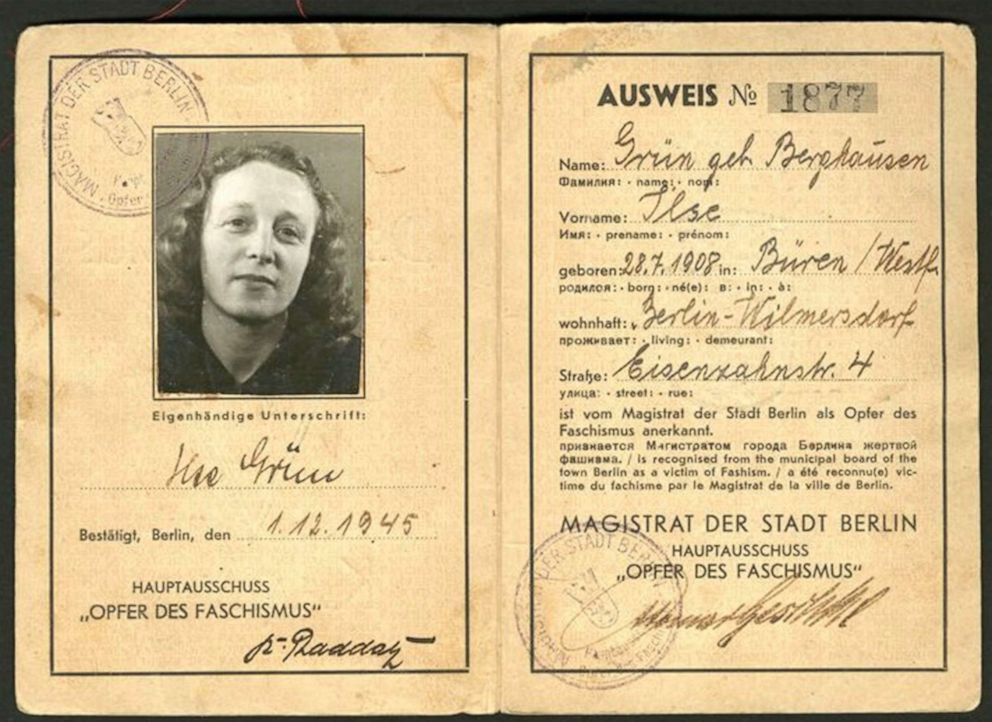 MAGISTRAT DER STADT BERLIN
Opfer
Eigenhändige Unterschrift:
Ilse Grün
Bestätigt, Berlin, den 1.12.1945
HAUPTAUSSCHUSS
„OPFER DES FASCHISMUS“
K. Raddatz
AUSWEIS № 1877
Name: Grün geb. Berghausen
Фамилия: · name: · nom:
Vorname: Ilse
Имя: · prename: · prénom:
geboren: 28.7.1908 in: Büren / Westf.
родился: · born: · né(e): в: · in: · à:
wohnhaft: Berlin-Wilmersdorf
проживает: · living: · demeurant:
Straße: Eisenzahnstr. 4
улица: · street: · rue:
ist vom Magistrat der Stadt Berlin als Opfer des
Faschismus anerkannt.
признается Магистратом города Берлина жертвой
фашизма. / is recognised from the municipal board of the
town Berlin as a victim of Fashism. / a été reconnu(e) vic-
time du fachisme par le Magistrat de la ville de Berlin.
MAGISTRAT DER STADT BERLIN
HAUPTAUSSCHUSS
„OPFER DES FASCHISMUS“
MAGISTRAT DER STADT BERLIN